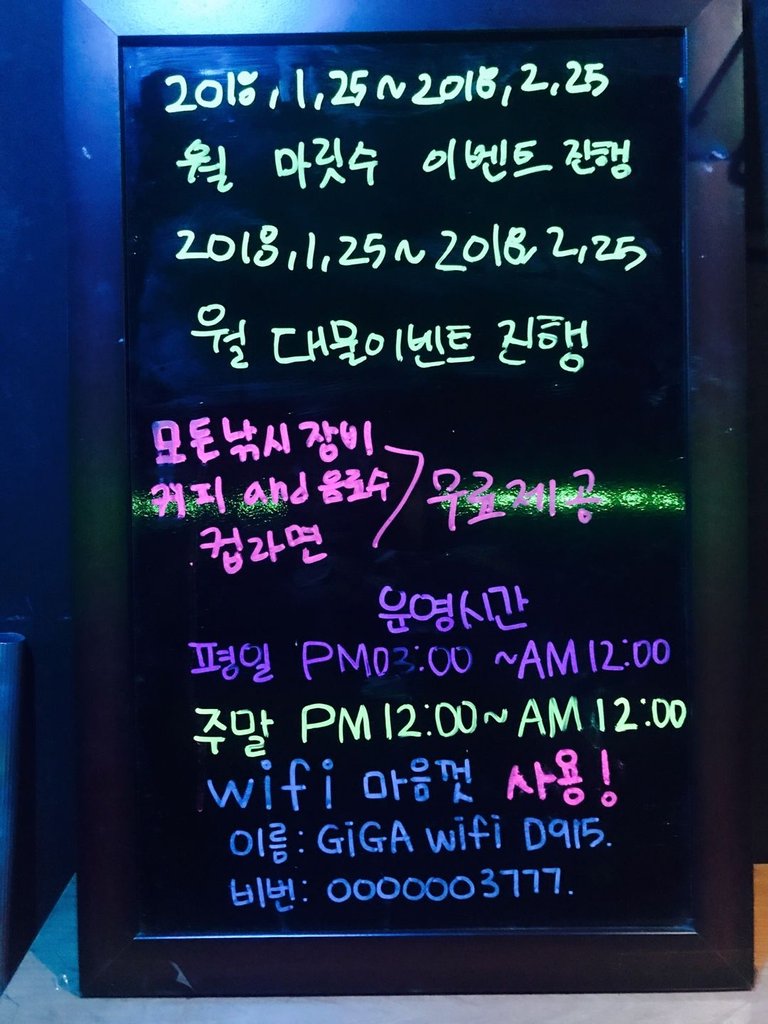 2018,1,25~2018,2,25
월 마릿수 이벤트 진행
2018,1,25~2018 2,25
월 대물이벤트 진행
모든낚시장비
커피 and 음료수
컵라면
무료제공
운영시간
평일 PM03:00 ~AM12:00
주말 PM12:00~AM12:00
wifi 마음껏 사용!
이름: GiGA wifi D915.
비번: 0000003777.